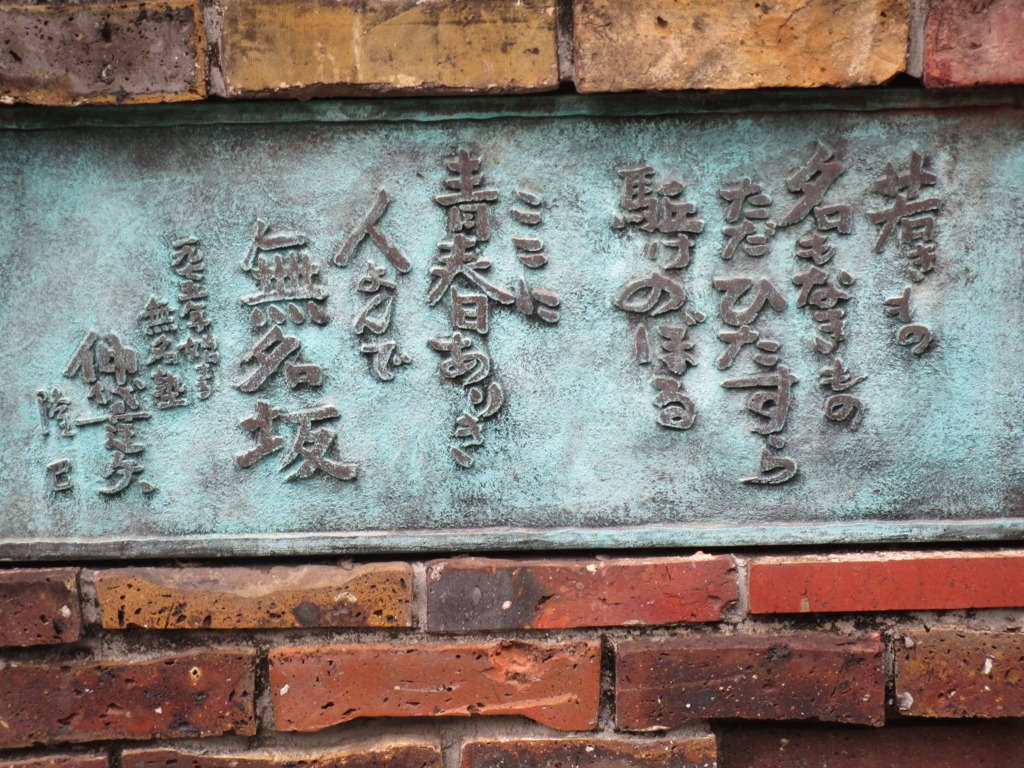 若きもの
名もなきもの
ただひたすら
駈けのぼる
ここに
青春ありき
人よんで
無名坂
一九七五年
無名塾
仲代達矢
隆巴